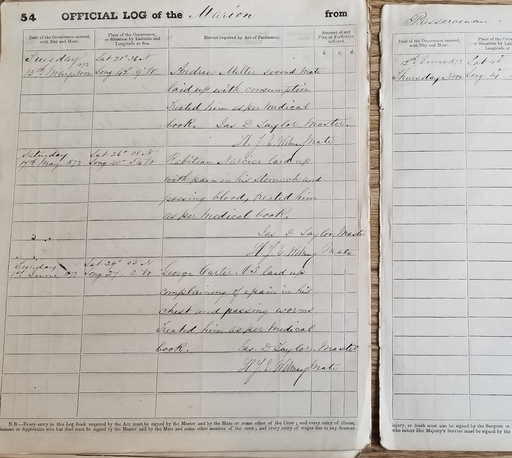 54 OFFICIAL LOG of the Marion from
Date of the Occurrence entered, with Day and Hour.
Place of the Occurrence, or Situation by Latitude and Longitude at Sea.
Entries required by Act of Parliament.
Amount of any Fine or Forfeiture inflicted.
Tuesday
Lat 21° 36 N
13th May 1873 Noon Long 42° 9' W Andrew Miller second mate
laid up with consumption
treated him as per medical
book. Jas D Taylor, Master
H. J. E. Mate
Saturday Lat 26° N
17th May 1873 Long W laid up
with pain in his stomach and
passing blood, treated him
as per medical book.
Jas D Taylor, Master
H J E Mate
Sunday Lat N
June Long W George Carter A.B. laid up
complaining of a pain in his
chest and passing worms
treated him as per medical
book. Jas D Taylor, Master
H J E Mate
N.B.—Every entry in this Log Book required by the Act must be signed by the Master and by the Mate or some other of the crew; and every entry of illness,
must be signed by the Master and by the Mate and some other member of the crew; and every entry of wages due to any Seaman
Date of the Occurrence entered, with Day and Hour.
June 1873 Lat
Thursday Noon Long
injury, or death must also be signed by the Surgeon or
who enters Her Majesty's Service must be signed by the